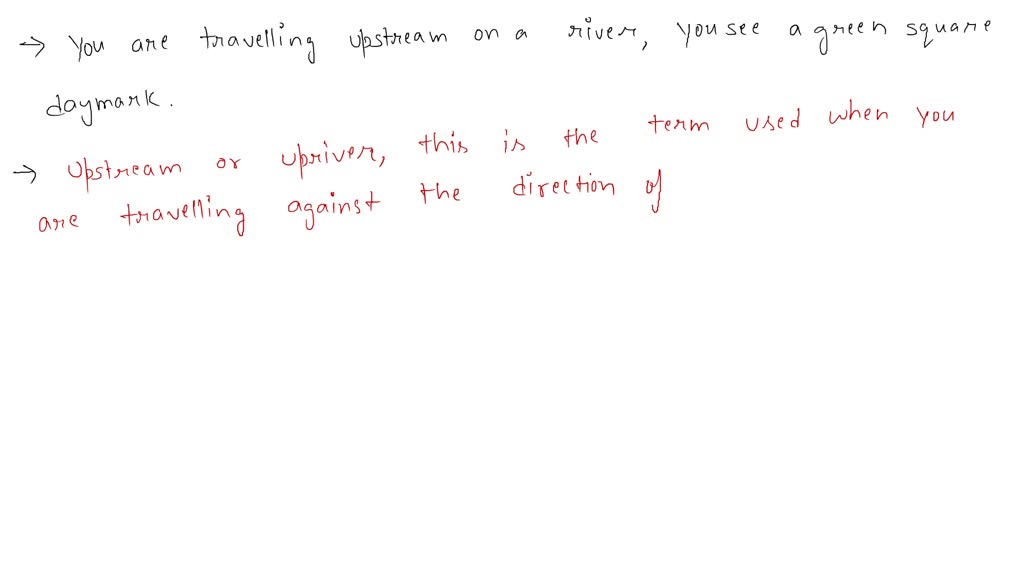 → You are travelling upstream on a river, you see a green square
daymark.
→ Upstream or upriver, this is the term used when you
are travelling against the direction of